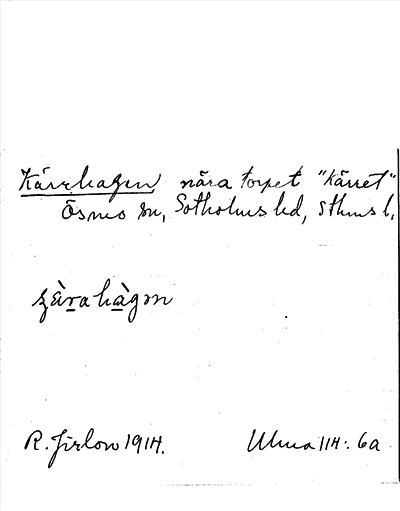 Kärrhagen nära torpet "Kärret"
Ösmo sn, Sotholms hd, Sthms l.
R. Jirlow 1914.
Ulma 114: 6a